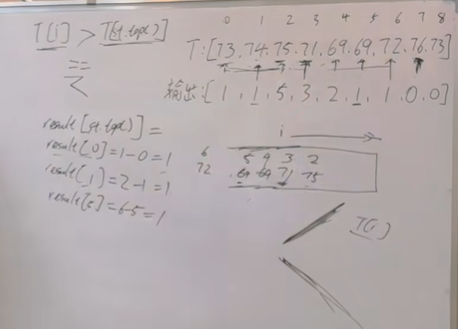 T[i] > T[st.top()]
==
<
0 1 2 3 4 5 6 7 8
T:[73.74.75.71.69.69.72.76.73]
输出:[1,1,5,3,2,1,1,0,0]
result[st.top()]=
result[0]=1-0=1
result[1]=2-1=1
result[5]=6-5=1
i
6
72
5 4 3 2
69 69 71 75
T[i]